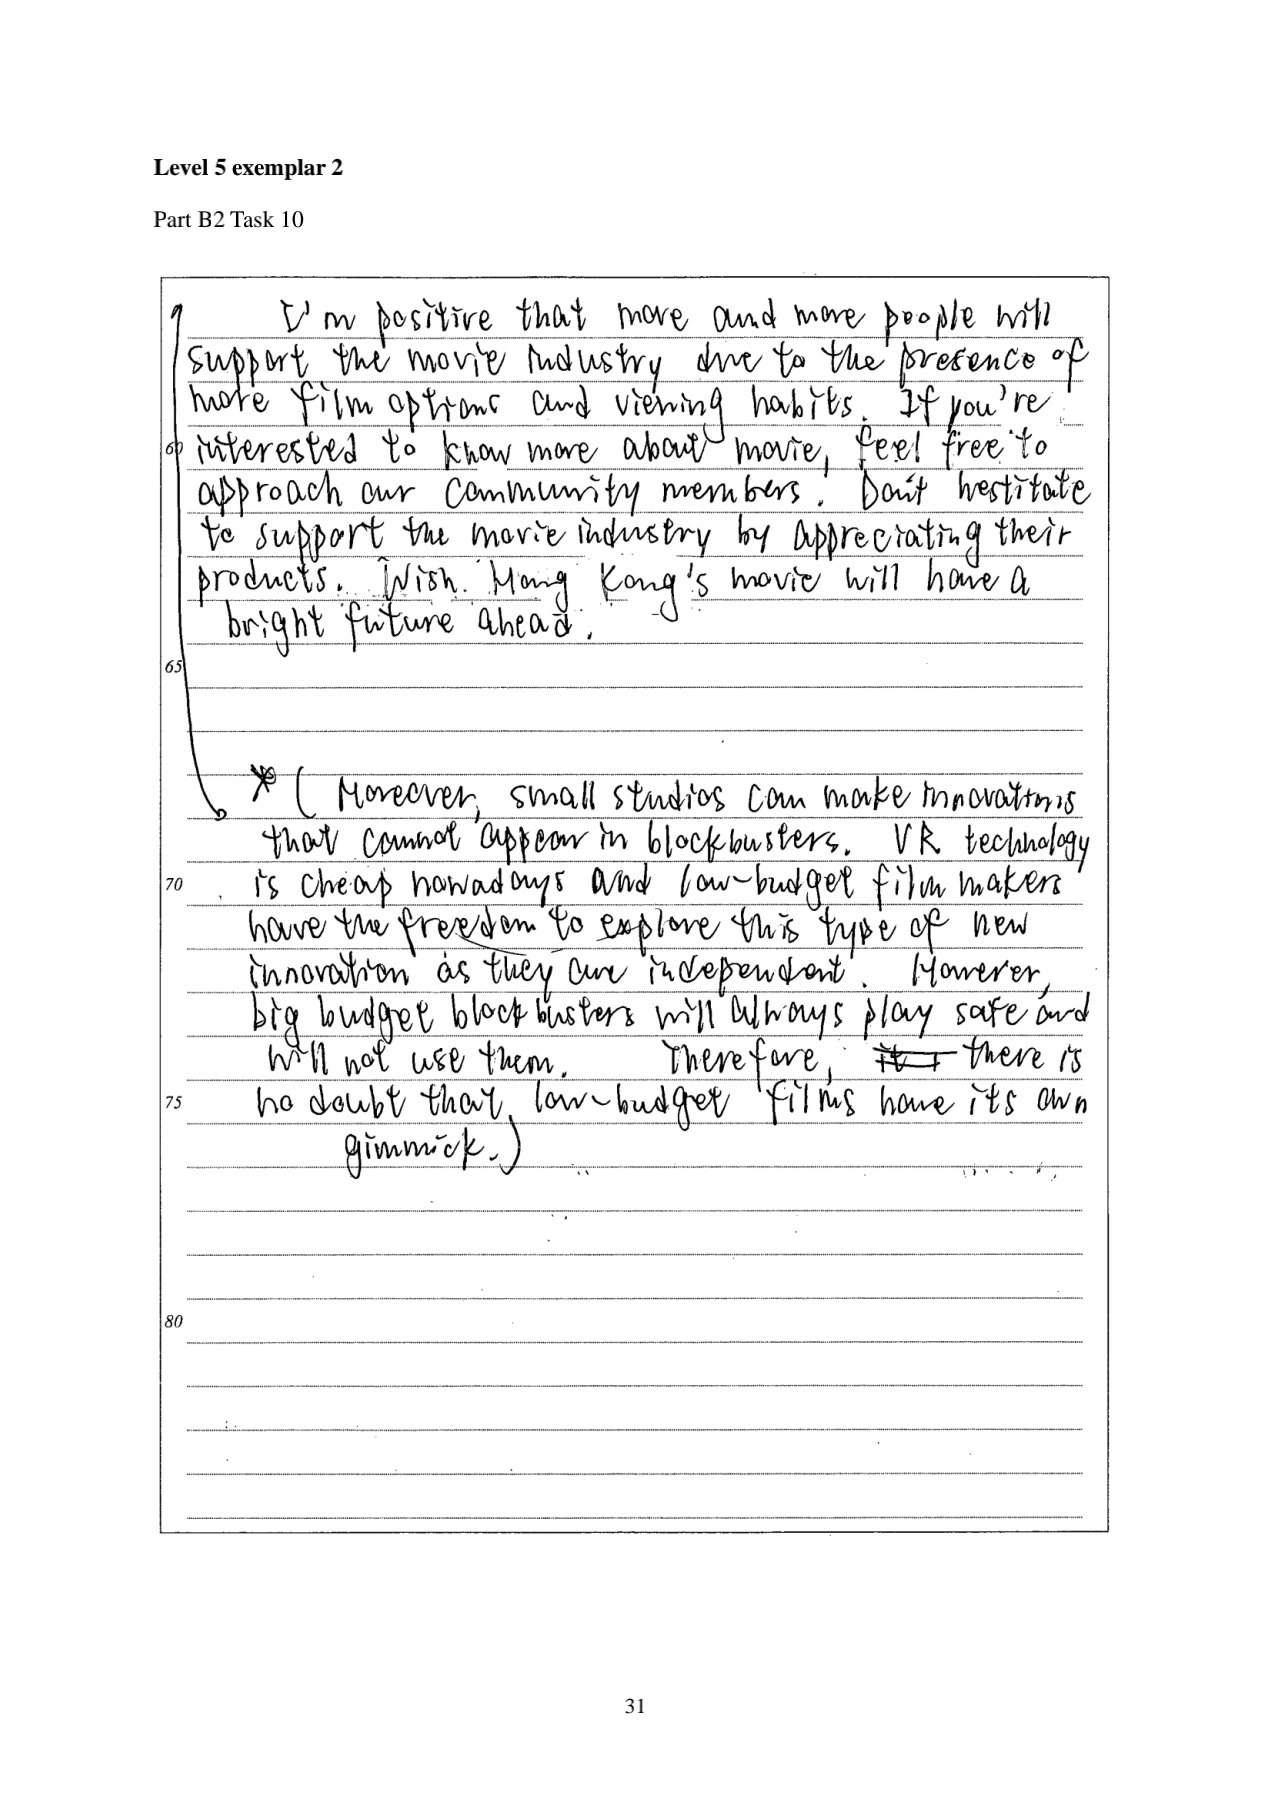 Level 5 exemplar 2
Part B2 Task 10
I'm positive that more and more people will
support the movie industry due to the presence of
more film options and viewing habits. If you're
60 interested to know more about movie, feel free to
approach our community members. Don't hestitate
to support the movie industry by appreciating their
products. Wish Hong Kong's movie will have a
bright future ahead.
65
* ( Moreover, small studios can make innovations
that cannot appear in blockbusters. VR technology
70 is cheap nowadays and low-budget film makers
have the freedom to explore this type of new
innovation as they are independent. However,
big budget blockbusters will always play safe and
will not use them. Therefore, there is
75 no doubt that low-budget films have its own
gimmick.)
80
31